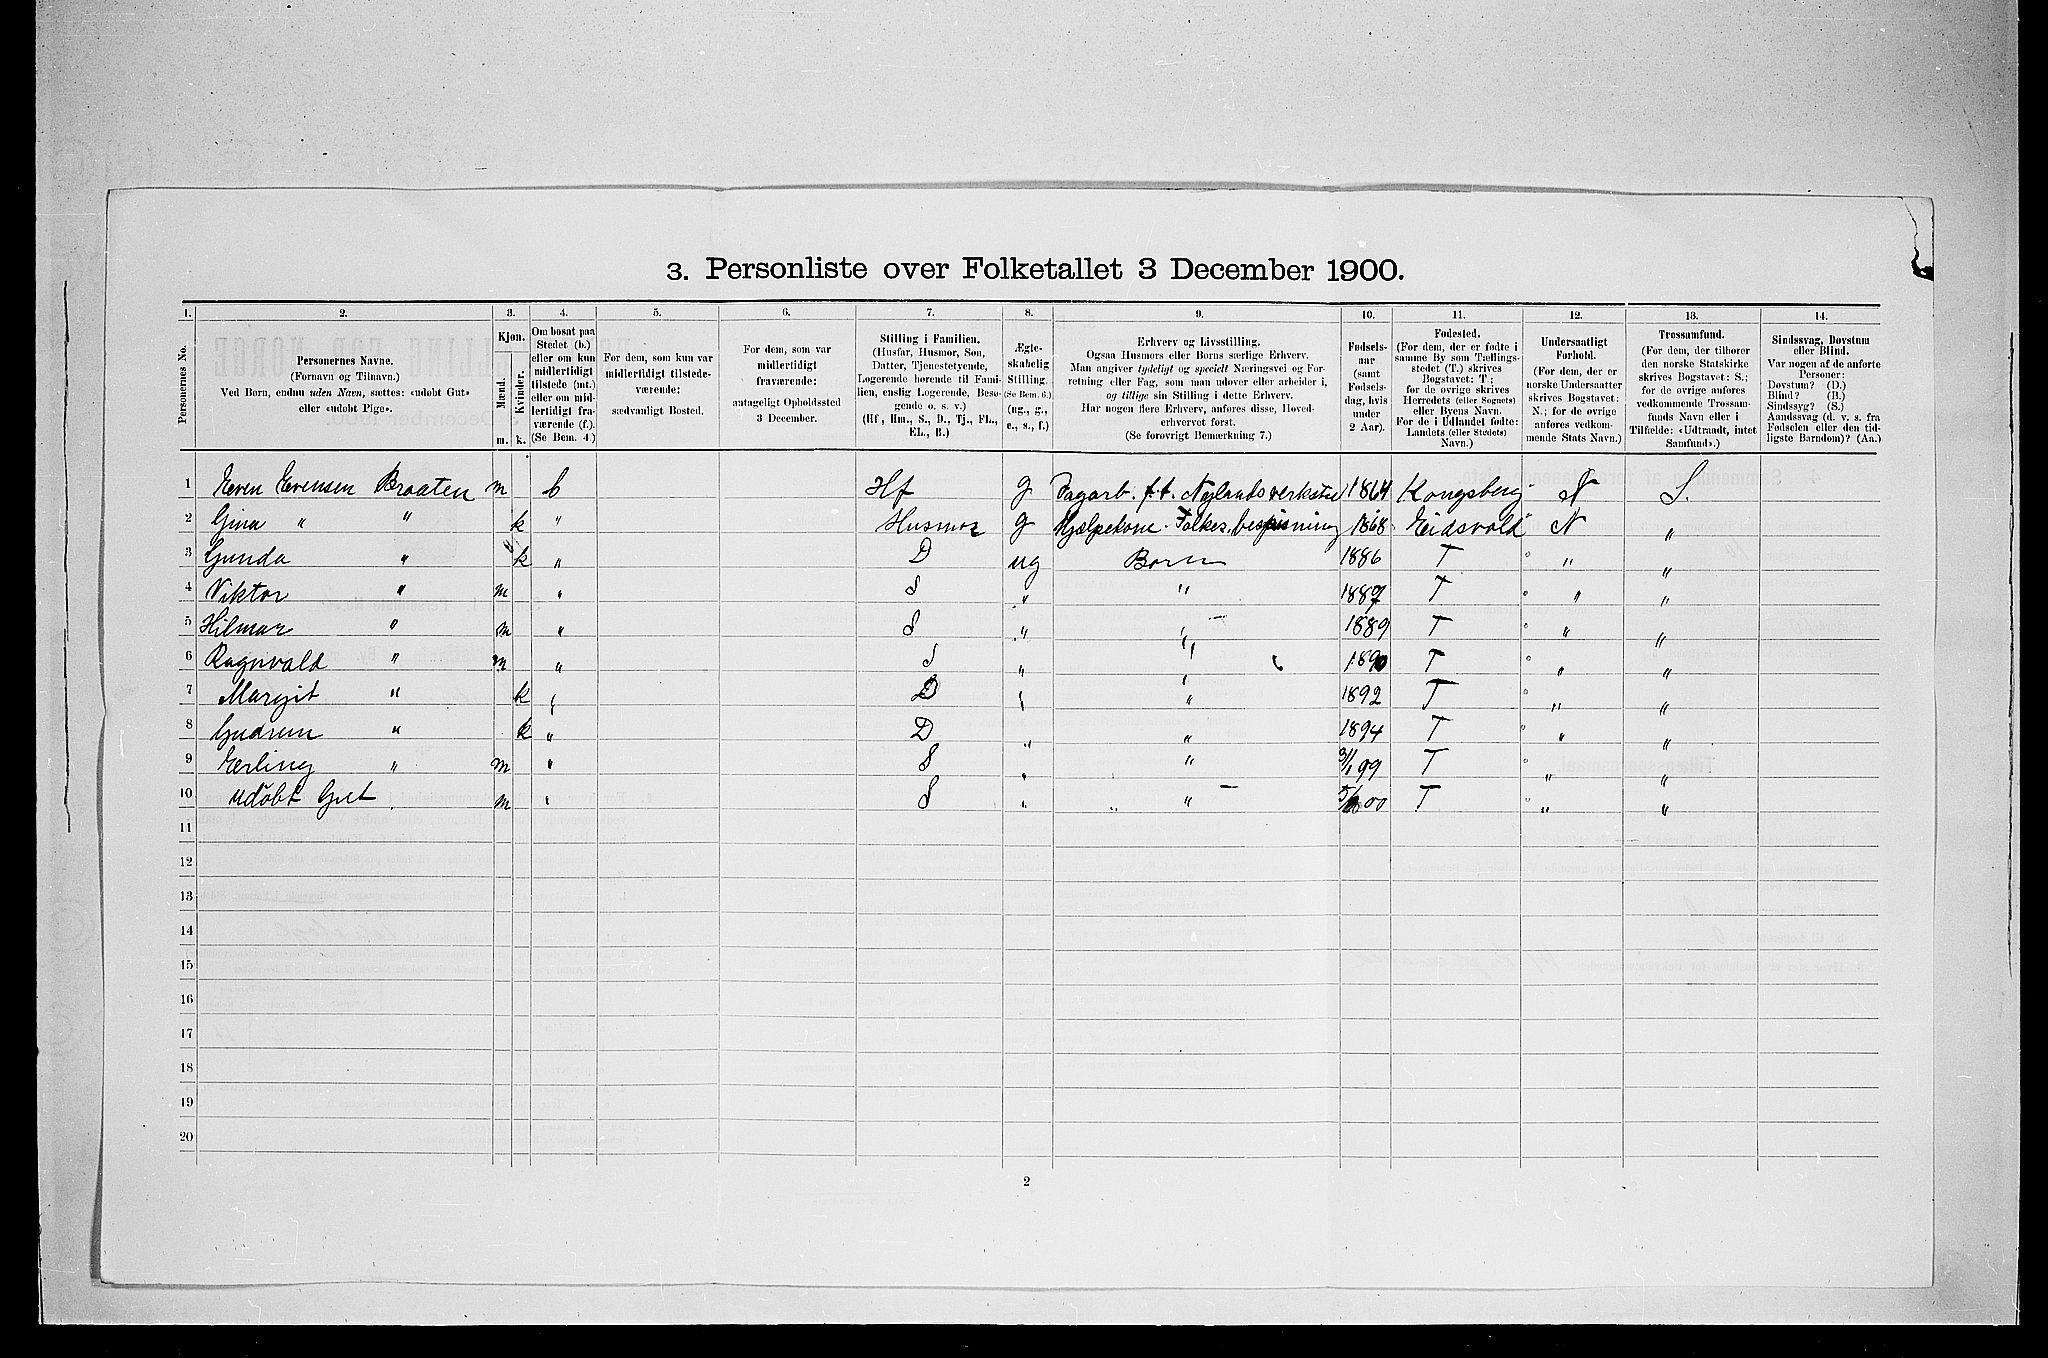 3. Personliste over Folketallet 3 December 1900.
1. 2. 3. 4. 5. 6. 7. 8. 9. 10. 11. 12. 13. 14.
Personernes No.
Personernes Navne.
(Fornavn og Tilnavn.)
Ved Børn, endnu uden Navn, sættes: «udøbt Gut»
eller «udøbt Pige».
Kjøn.
Mænd.
Kvinder.
m. k.
Om bosat paa
Stedet (b.)
eller om kun
midlertidigt
tilstede (mt.)
eller om mid-
lertidigt fra-
værende (f.).
(Se Bem. 4.)
For dem, som kun var
midlertidigt tilstede-
værende:
sædvanligt Bosted.
For dem, som var
midlertidigt
fraværende:
antageligt Opholdssted
3 December.
Stilling i Familien.
(Husfar, Husmor, Søn,
Datter, Tjenestetyende,
Logerende hørende til Fami-
lien, enslig Logerende, Besø-
gende o. s. v.)
(Hf, Hm., S., D., Tj., FL.,
EL., B.)
Ægte-
skabelig
Stilling.
(Se Bem. 6.)
(ug., g.,
e., s., f.)
Erhverv og Livsstilling.
Ogsaa Husmors eller Børns særlige Erhverv.
Man angiver tydeligt og specielt Næringsvei og For-
retning eller Fag, som man udøver eller arbeider i,
og tillige sin Stilling i dette Erhverv.
Har nogen flere Erhverv, anføres disse, Hoved-
erhvervet først.
(Se forøvrigt Bemærkning 7.)
Fødsels-
aar
(samt
Fødsels-
dag, hvis
under
2 Aar).
Fødested.
(For dem, der er fødte i
samme By som Tællings-
stedet (T.) skrives
Bogstavet: T.;
for de øvrige skrives
Herredets (eller Sognets)
eller Byens Navn.
For de i Udlandet fødte:
Landets (eller Stedets)
Navn.)
Undersaatligt
Forhold.
(For dem, der er
norske Undersaatter
skrives Bogstavet:
N.; for de øvrige
anføres vedkom-
mende Stats Navn.)
Trossamfund.
(For dem, der tilhører
den norske Statskirke
skrives Bogstavet: S.;
for de øvrige anføres
vedkommende Trossam-
funds Navn eller i
Tilfælde: «Udtraadt, intet
Samfund».)
Sindssvag, Døvstum
eller Blind.
Var nogen af de anførte
Personer:
Døvstum? (D.)
Blind? (B.)
Sindssyg? (S.)
Aandssvag (d. v. s. fra
Fødselen eller den tid-
ligste Barndom)? (Aa.)
1 Even Evensen Braaten m b Hf g Dagarb. f.t. Nylands verksted 1864 Kongsberg N S.
2 Gina " " k " Husmor g Hjælpekone Folkes bespisning 1868 Eidsvold N "
3 Gunda " k " D ug Barn 1886 T " "
4 Viktor " m " S " " 1887 T " "
5 Hilmar " m " S " " 1889 T " "
6 Ragnvald " m " S " " 1890 T " "
7 Margit " k " D " " 1892 T " "
8 Gudrun " k " D " " 1894 T " "
9 Erling " m " S " " 99 T " "
10 udøbt Gut m " S " " 00 T " "
11
12
13
14
15
16
17
18
19
20
2